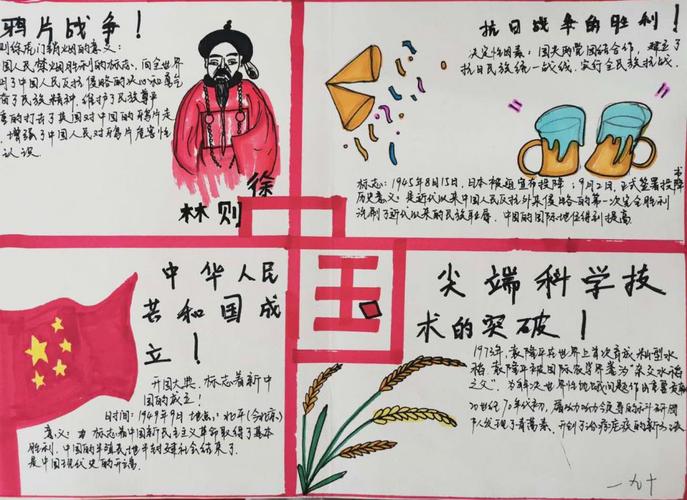 鸦片战争！
则徐虎门销烟的意义：
国人民禁烟胜利的标志，向全世界
了中国人民反抗侵略的决心和
奋了民族精神，维护了民族尊严
的打击了英国对中国的鸦片走
增强了中国人民对鸦片危害性
认识
林则徐
抗日战争的胜利！
决定性因素：国共两党团结合作，建立了
抗日民族统一战线，实行全民族抗战。
标志：1945年8月15日，日本被迫宣布投降；9月2日，正式签署投降书
历史意义：是近代以来中国人民反抗外来侵略的第一次完全胜利
洗刷了近代以来的民族耻辱，中国的国际地位得到提高。
中国
中华人民
共和国成
立！
开国大典，标志着新中
国的成立！
时间：1949年9月 地点：北平（今北京）
意义： 标志着中国新民主主义革命取得了基本
胜利，中国的半殖民地半封建社会结束了。
是中国现代史的开端。
尖端科学技
术的突破！
1973年，袁隆平在世界上首次育成籼型水
稻，袁隆平被国际农学界誉为“杂交水稻
之父”，为解决世界性饥饿问题作出重要贡献
20世纪70年代初，屠呦呦领导的科研团
队发现了青蒿素，开创了治疗疟疾的新方法
一九十